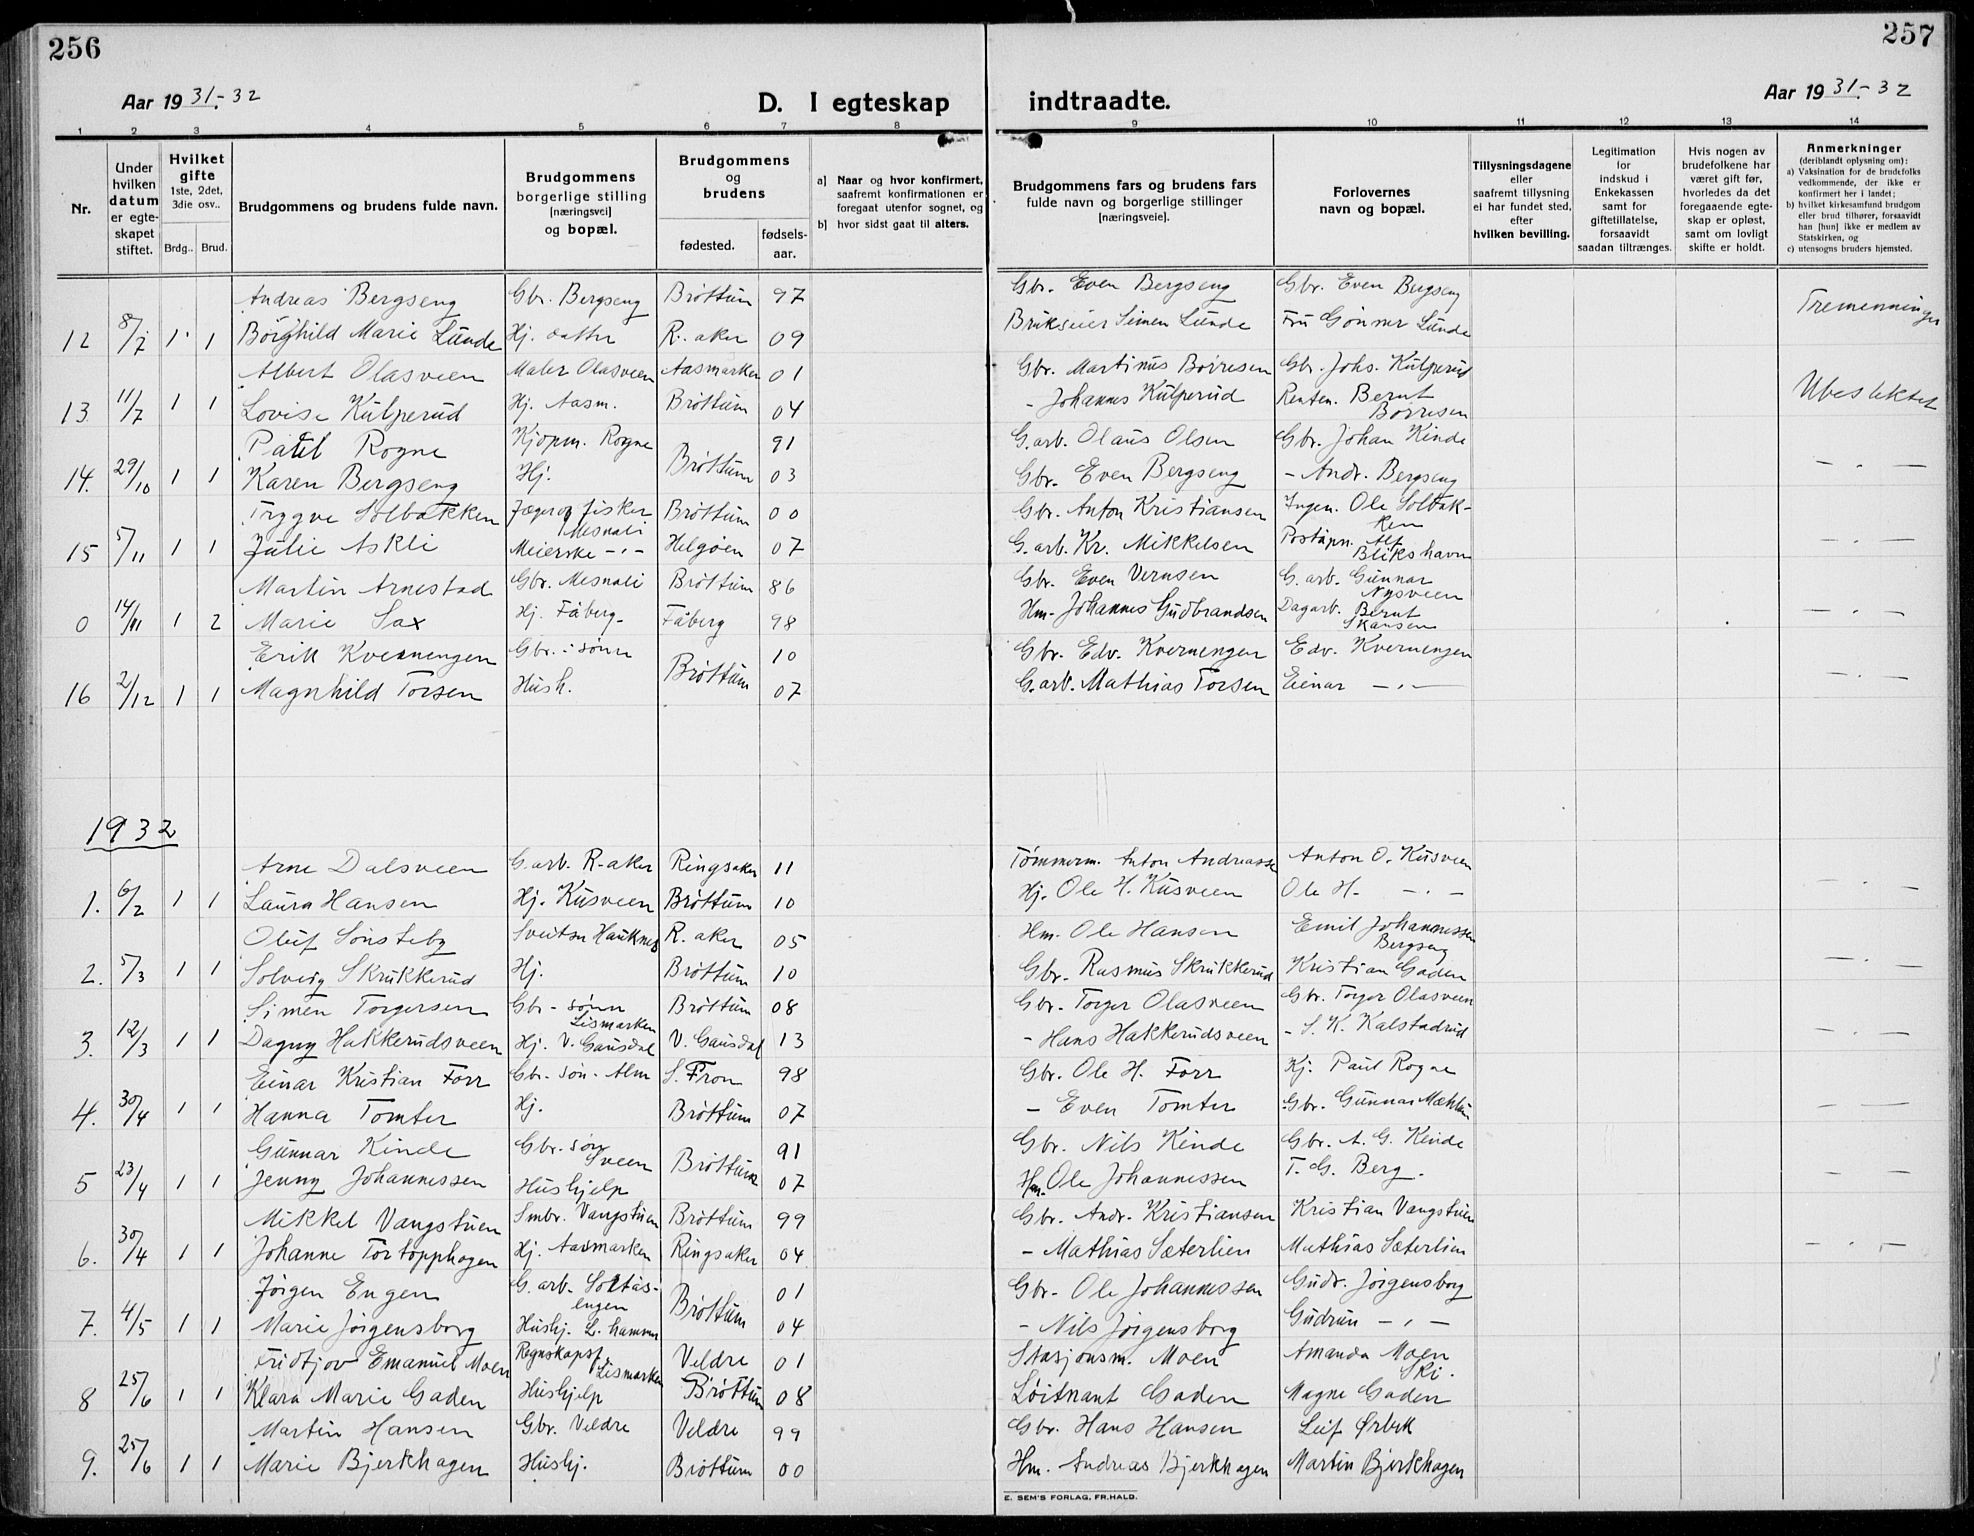 256
257
Aar 1931.-32
D. I egteskap
indtraadte.
Aar 1931.-32
1 2 3 4 5 6 7 8 9 10 11 12 13 14
Nr.
Under hvilken datum er egteskapet stiftet.
Hvilket gifte 1ste, 2det, 3die osv..
Brdg.. Brud.
Brudgommens og brudens fulde navn.
Brudgommens borgerlige stilling [næringsvei] og bopæl.
Brudgommens og brudens
fødested. fødsels-aar.
a] Naar og hvor konfirmert, saafremt konfirmationen er foregaat utenfor sognet, og
b] hvor sidst gaat til alters.
Brudgommens fars og brudens fars fulde navn og borgerlige stillinger [næringsveie].
Forlovernes navn og bopæl.
Tillysningsdagene eller saafremt tillysning ei har fundet sted, efter hvilken bevilling.
Legitimation for indskud i Enkekassen samt for giftetillatelse, forsaavidt saadan tiltrænges.
Hvis nogen av brudefolkene har været gift før, hvorledes da det foregaaende egteskap er opløst, samt om lovligt skifte er holdt.
Anmerkninger (deriblandt oplysning om): a) Vaksination for de brudefolks vedkommende, der ikke er konfirmert her i landet; b) hvilket kirkesamfund brudgom eller brud tilhører, forsaavidt han [hun] ikke er medlem av Statskirken, og c) utensogns bruders hjemsted.
Andreas Bergseng Gbr. Bergseng Brøttum 97 Gbr. Even Bergseng Gbr. Even Bergseng
12 8/7 1 1 Borghild Marie Lunde Hj. datter R.-aker 09 Brukseier Simen Lunde Fru Gunvor Lunde Tremenninger
Albert Olasveen Maler Olasveen Aasmarken 01 Gbr. Martinus Børresen Gbr. Johs. Kulperud
13 11/7 1 1 Lovise Kulperud Hj. Aasm. Brøttum 04 - Johannes Kulperud Renten. Bernt Børresen Ubeslektet
Paul Rogne Kjøpm. Rogne 91 G.arb. Olaus Olsen Gbr. Johan Kinde
14. 29/10 1 1 Karen Bergseng Hj. Brøttum 03 Gbr. Even Bergseng - Andr. Bergseng - " -
Trygve Solbakken Jæger og fisker Mesnali Brøttum 00 Gbr. Anton Kristiansen Ingen. Ole Solbakken
15 5/11 1 1 Julie Askli Meierske - " - Helgøen 07 G.arb. Kr. Mikkelsen Poståpn. Alf Blikshavn - " -
Martin Arnestad Gbr. Mesnali Brøttum 86 Gbr. Even Vernsen G.arb. Gunnar Nysveen
0 14/11 1 2 Marie Sax Hj. Fåberg Fåberg 98 Hm. Johannes Gudbrandsen Dagarb. Bernt Skansen - " -
Erik Kvernengen Gbr.-sønn 10 Gbr. Edv. Kvernengen Edv. Kvernengen
16 2/12 1 1 Magnhild Torsen Hush. Brøttum 07 G.arb. Mathias Torsen Einar - " - - " -
1932
Arne Dalsveen G.arb. R-aker Ringsaker 11 Tømmerm. Anton Andreassen Anton O. Kusveen
1. 6/2 1 1 Laura Hansen Hj. Kusveen Brøttum 10 Hj. Ole H. Kusveen Ole H. - " - - " -
Oluf Sønsteby Sveitser Hauknes R.aker 05 Hm. Ole Hansen Emil Johannessen Bergseng
2. 5/3 1 1 Solveig Skrukkerud Hj. Brøttum 10 Gbr. Rasmus Skrukkerud Kristian Gaden - " -
Simen Torgersen Gbr-sønn Lismarken Brøttum 08 Gbr. Torger Olasveen Gbr. Torger Olasveen
3. 12/3 1 1 Dagny Hakkerudsveen Hj. V. Gausdal V. Gausdal 13 - Hans Hakkerudsveen - S. K. Kalstadrud - " -
Einar Kristian Forr Gbr.-søn. Alm S. Fron 98 Gbr. Ole H. Forr Kj. Paul Rogne
4. 30/4 1 1 Hanna Tomter Hj. Brøttum 07 - Even Tomter Gbr. Gunnar Mæhlum - -
Gunnar Kinde Gbr.-søn Sveen 91 Gbr. Nils Kinde Gbr. A. G. Kinde
5 23/4 1 1 Jenny Johannessen Hushjelp Brøttum 07 Hm. Ole Johannessen T. G. Berg. - " -
Mikkel Vangstuen Smbr. Vangstuen Brøttum 99 Gbr. Andr. Kristiansen Kristian Vangstuen
6. 30/4 1 1 Johanne Tortopphagen Hj. Aasmarken Ringsaker 04 - Mathias Sæterlien Mathias Sæterlien - " -
Jørgen Engen G.arb. Soltåsengen 01 Gbr. Ole Johannessen Gudr. Jørgensborg
7. 4/5 1 1 Marie Jørgensborg Hushj. L.hammer Brøttum 04 - Nils Jørgensborg Gudrun - " -
Fridtjov Emanuel Moen Regnskapsf. Lismarken Veldre 01 Stasjonsm. Moen Amanda Moen Ski.
8 25/6 1 1 Klara Marie Gaden Hushjelp Brøttum 08 Løitnant Gaden Magne Gaden
Martin Hansen Gbr. Veldre Veldre 99 Gbr. Hans Hansen Leif Ørbek
9. 25/6 1 1 Marie Bjerkhagen Hushj. Brøttum 00 Hm. Andreas Bjerkhagen Martin Bjerkhagen
E. SEM'S FORLAG, FR.HALD.